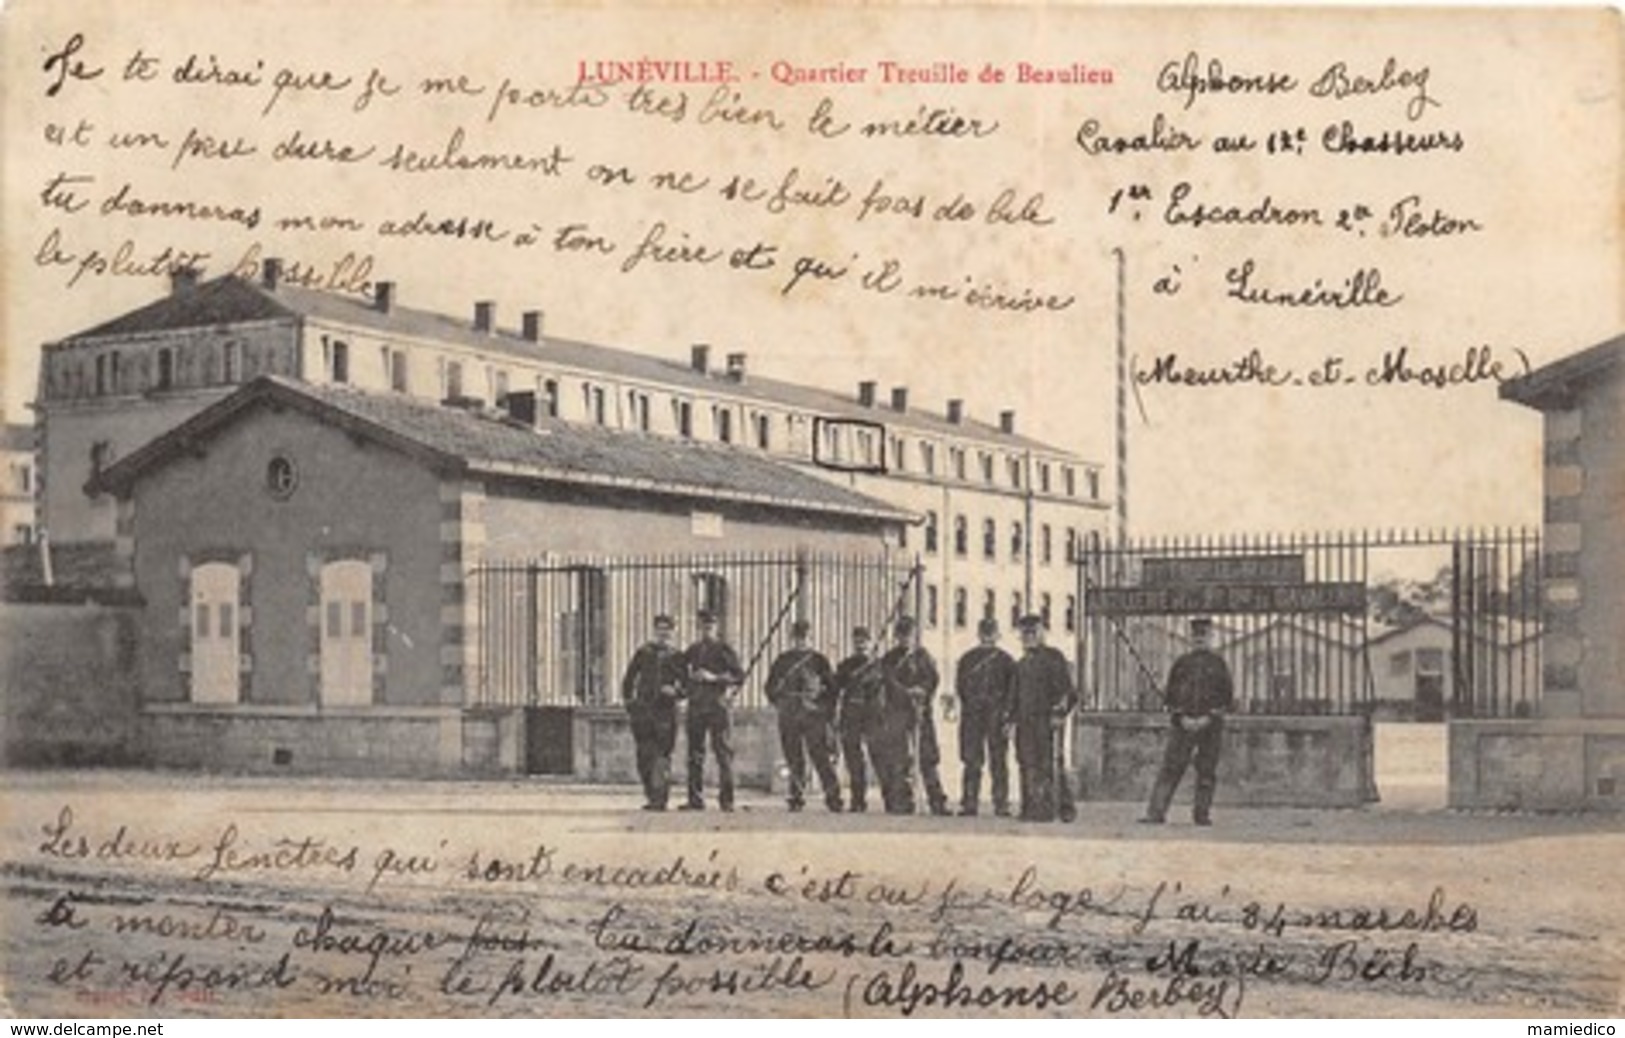 LUNÉVILLE. - Quartier Treuille de Beaulieu
Je te dirai que je me porte tres bien le métier
est un peu dure seulement on ne se fait pas de bile
tu donneras mon adresse à ton frère et qu'il m'écrive
le plutôt possible
Alphonse Berbey
Cavalier au 12e Chasseurs
1er Escadron 2e Ploton
à Lunéville
(Meurthe-et-Moselle)
Les deux fenêtres qui sont encadrées c'est ou je loge J'ai 84 marches
à monter chaque fois. Tu donneras le bonjour a
et répond moi le plutôt possible (Alphonse Berbey)
www.delcampe.net
mamiedico